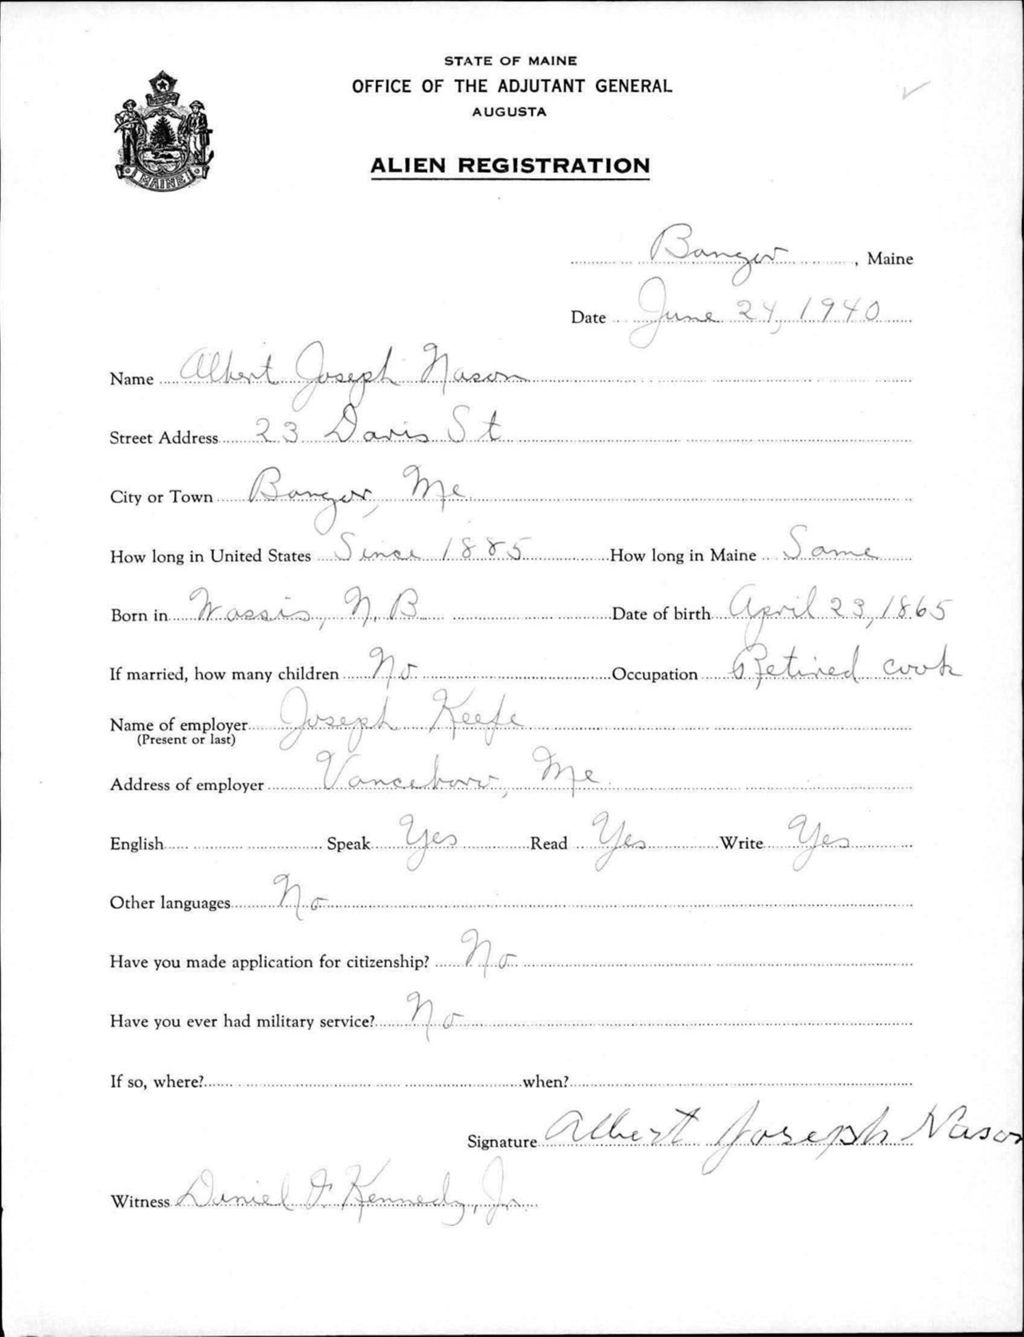 STATE OF MAINE
OFFICE OF THE ADJUTANT GENERAL
AUGUSTA
MAINE
ALIEN REGISTRATION
Bangor, Maine
Date June 24, 1940
Name Albert Joseph Nason
Street Address 23 Davis St
City or Town Bangor, Me
How long in United States Since 1885 How long in Maine Same
Born in Wassis, N. B Date of birth April 23, 1865
If married, how many children No Occupation Retired cook
Name of employer Joseph Keefe
(Present or last)
Address of employer Vanceboro, Me
English Speak Yes Read Yes Write Yes
Other languages No
Have you made application for citizenship? No
Have you ever had military service? No
If so, where? when?
Signature Albert Joseph Nason
Witness Daniel F. Kennedy, Jr.